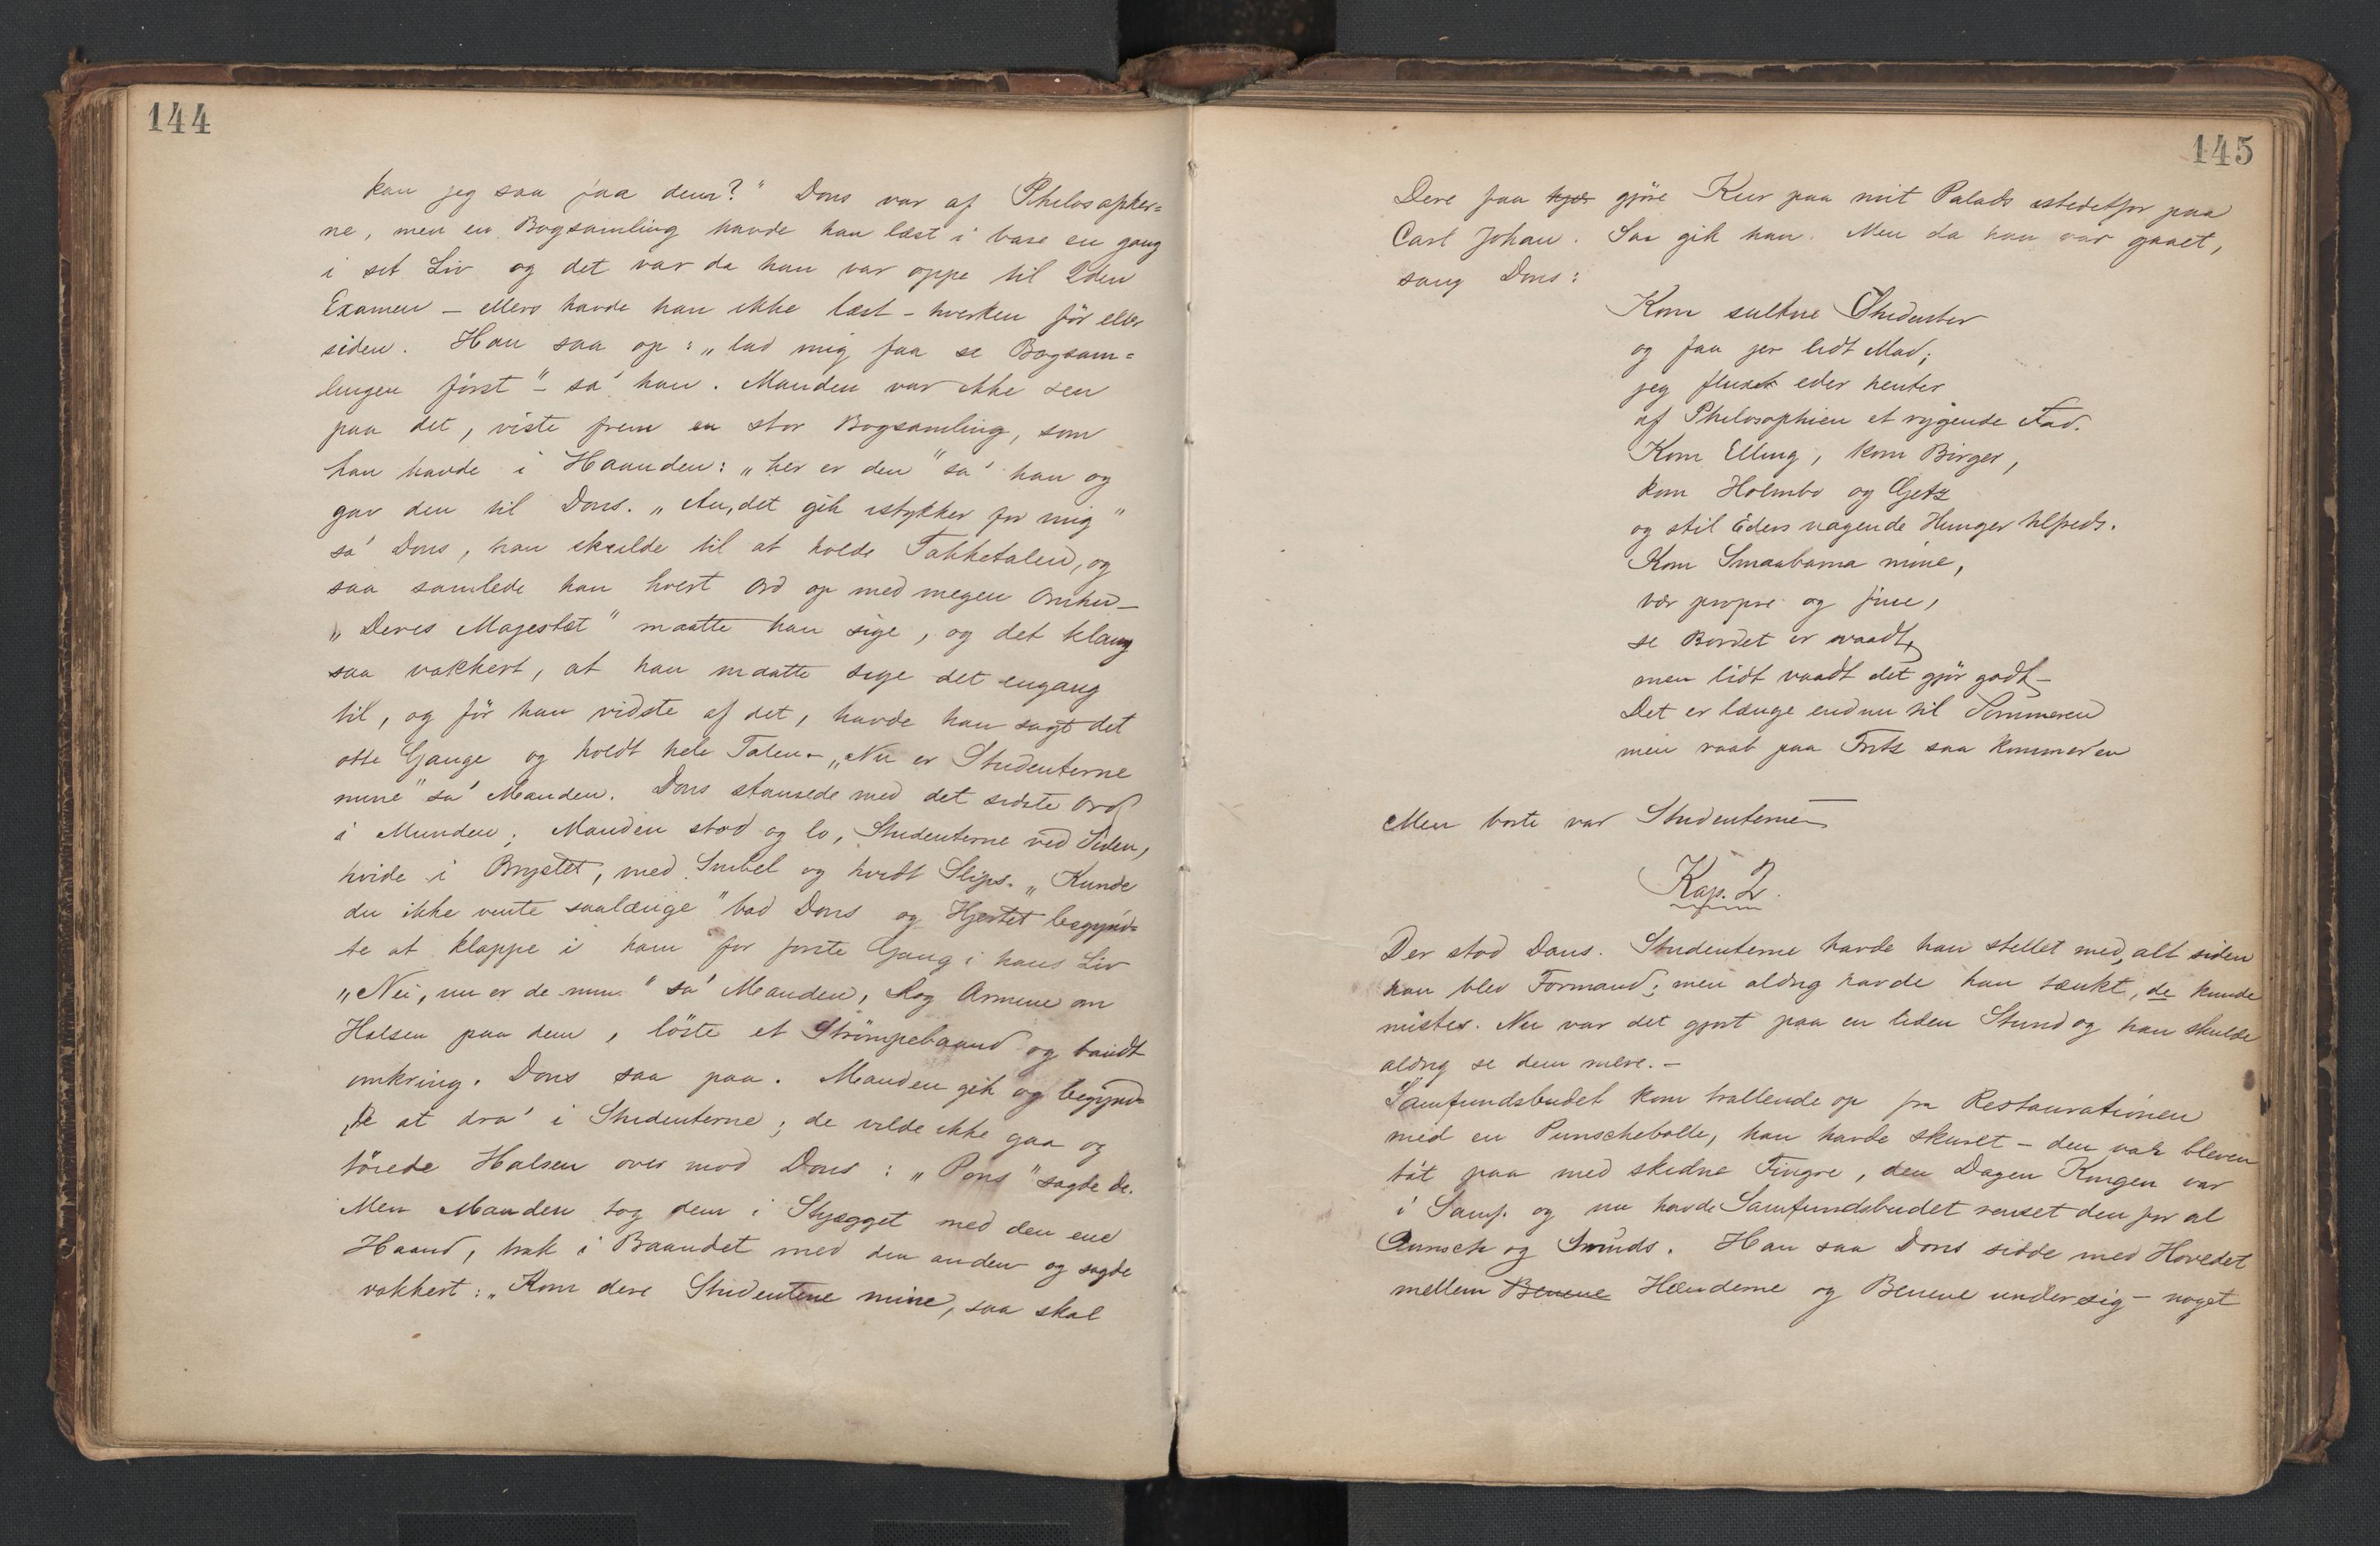 144
kan jeg saa faa dem?" Dons var af Philosopher=
ne, men en Bogsamling havde han læst i bare en gang
i sit Liv og det var da han var oppe til 2den
Examen – ellers havde han ikke læst – hverken før eller
siden. Han saa op: „lad mig faa se Bogsam=
lingen først" – sa' han. Manden var ikke sen
paa det, viste frem en stor Bogsamling, som
han havde i Haanden: „her er den" sa' han og
gav den til Dons. „Au, det gik istykker for mig"
sa' Dons, han skulde til at holde Takketalen, og
saa samlede han hvert Ord op med megen Omhu –
„Deres Majestæt" maatte han sige, og det klang
saa vakkert, at han maatte sige det engang
til, og før han vidste af det, havde han sagt det
otte Gange og holdt hele Talen – „Nu er Studenterne
mine" sa' Manden. Dons stansede med det sidste Ord
i Munden; Manden stod og lo, Studenterne ved Siden,
hvide i Brystet, med Snibel og hvidt Slips. „Kunde
du ikke vente saalænge" bad Dons og Hjertet begynd=
te at klappe i ham for første Gang i hans Liv
„Nei, nu er de mine" sa' Manden, slog Armene om
Halsen paa dem, løste et Strømpebaand og bandt
omkring. Dons saa paa. Manden gik og begynd=
te at dra' i Studenterne; de vilde ikke gaa og
tøiede Halsen over mod Dons: „Pons" sagde de.
Men Manden tog dem i Skjægget med den ene
Haand, trak i Baandet med den anden og sagde
vakkert: „Kom dere Studentene mine, saa skal
145
Dere faa gjøre Kur paa mit Palads istedetfor paa
Carl Johan. Saa gik han. Men da han var gaaet,
sang Dons:
Kom sultne Studenter
og faa jer lidt Mad;
jeg fluxt eder henter
af Philosophien et rygende Fad.
Kom Elling, kom Birger,
kom Holmbo og Getz
og stil Eders nagende Hunger tilfreds.
Kom Smaabarna mine,
vær propre og fine,
se Bordet er vaadt,
men lidt vaadt det gjør godt –
Det er længe endnu til Sommeren
men raab paa Fritz saa kommer'en
Men borte var Studenterne –
Kap. 2.
Der stod Dons. Studenterne havde han stellet med, alt siden
han blev Formand; men aldrig havde han tænkt, de kunde
mistes. Nu var det gjort paa en liden Stund og han skulde
aldrig se dem mere. –
Samfundsbudet kom trallende op fra Restaurationen
med en Punschebolle, han havde skuret – den var bleven
tåt paa med skidne Fingre, den Dagen Kongen var
i Samf. og nu havde Samfundsbudet renset den for al
Punsch og Smuds. Han saa Dons sidde med Hovedet
mellem Benene Hænderne og Benene under sig – noget